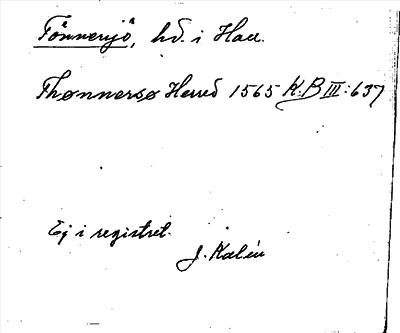 Tönnersjö, hd. i Hall.
Thønnersø Herred 1565 K.B III: 637
Ej i registret.
J. Kalén